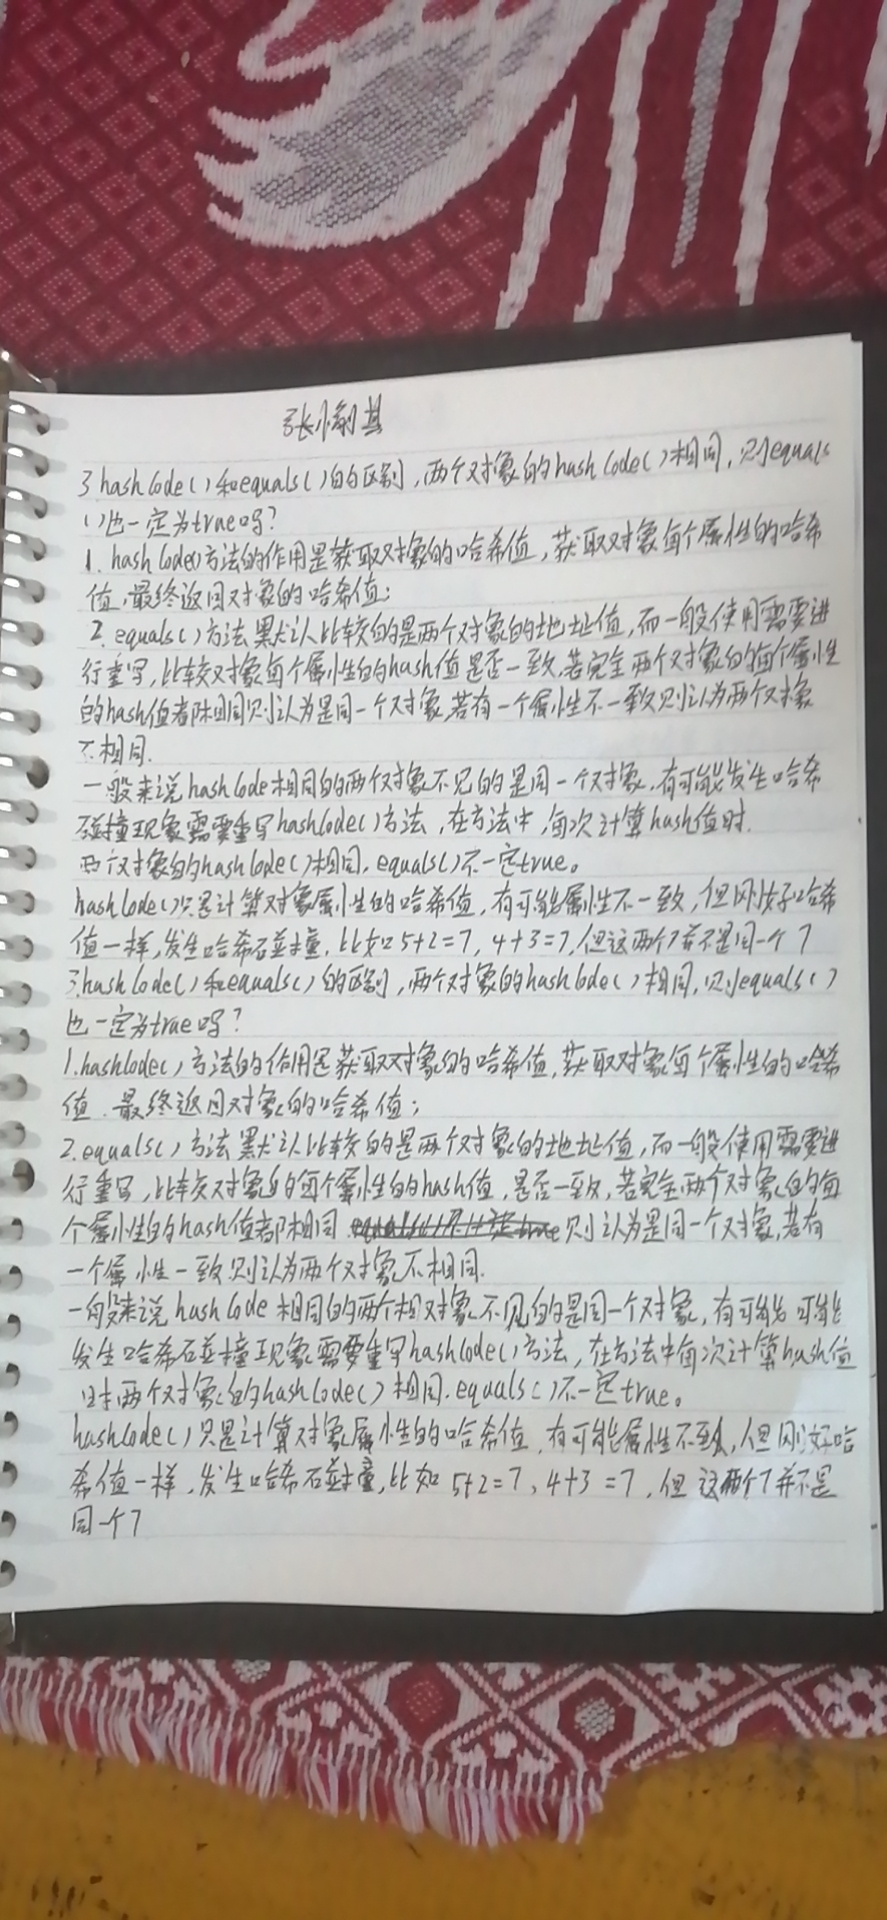 3.hashCode()和equals()的区别,两个对象的hashCode()相同,则equals
()也一定为true吗?
1.hashCode()方法的作用是获取对象的哈希值,获取对象每个属性的哈希
值,最终返回对象的哈希值;
2.equals()方法默认比较的是两个对象的地址值,而一般使用需要进
行重写,比较对象每个属性的hash值是否一致,若完全两个对象的每个属性
的hash值都相同则认为是同一个对象,若有一个属性不一致则认为两个对象
不相同.
一般来说hashCode相同的两个对象不见的是同一个对象,有可能发生哈希
碰撞现象需要重写hashCode()方法,在方法中,每次计算hash值时.
两个对象的hashCode()相同,equals()不一定true。
hashCode()只是计算对象属性的哈希值,有可能属性不一致,但刚好哈希
值一样,发生哈希碰撞,比如5+2=7,4+3=7,但这两个7并不是同一个7
3.hashCode()和equals()的区别,两个对象的hashCode()相同,则equals()
也一定为true吗?
1.hashCode()方法的作用是获取对象的哈希值,获取对象每个属性的哈希
值.最终返回对象的哈希值;
2.equals()方法默认比较的是两个对象的地址值,而一般使用需要进
行重写,比较对象的每个属性的hash值,是否一致,若完全两个对象的每
个属性的hash值都相同 则认为是同一个对象,若有
一个属性一致则认为两个对象不相同.
一般来说hashCode相同的两个相对象不见的是同一个对象,有可能可能
发生哈希碰撞现象需要重写hashCode()方法,在方法中每次计算hash值
时两个对象的hashCode()相同.equals()不一定true。
hashCode()只是计算对象属性的哈希值,有可能属性不,但刚好哈
希值一样,发生哈希碰撞,比如5+2=7,4+3=7,但这两个7并不是
同一个7